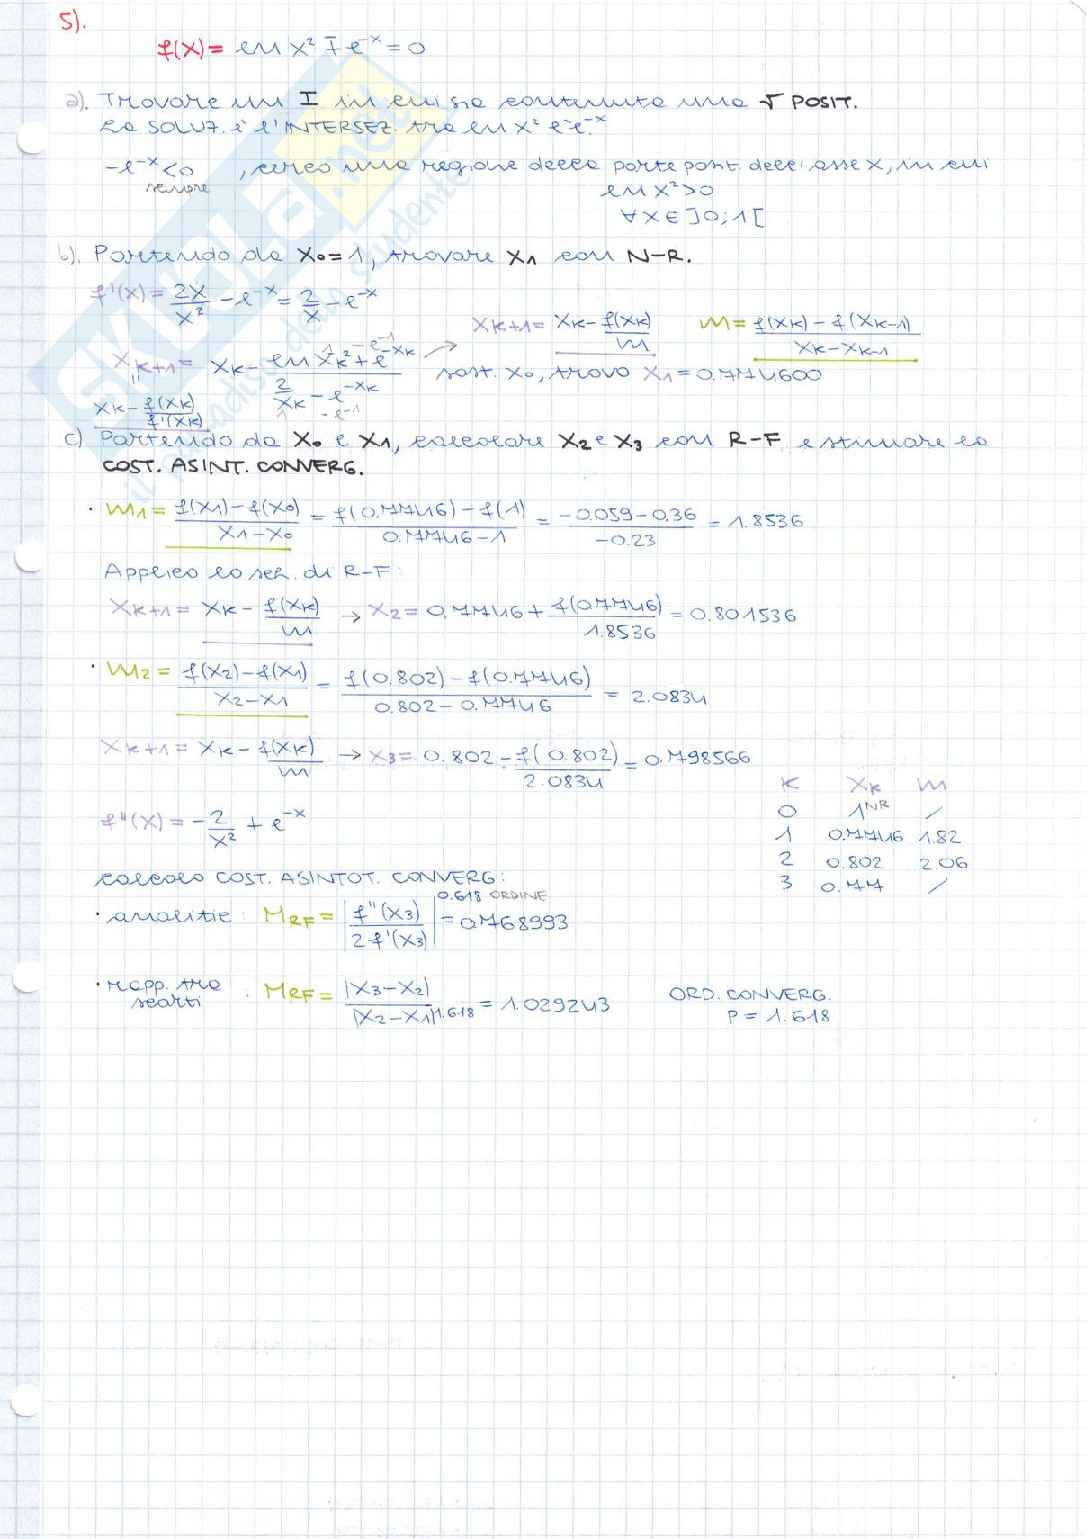 5).
f(x) = ln x² + e⁻ˣ = 0
a). Trovare un I in cui sia contenuta una √ POSIT.
La SOLUZ. è l'INTERSEZ. tra ln x² e e⁻ˣ
-e⁻ˣ<0 , cerco una regione della parte posit. dell'asse x, in cui
sempre ln x²>0
∀x∈]0;1[
b). Partendo da x₀=1, trovare x₁ con N-R.
f'(x) = 2x/x² - e⁻ˣ = 2/x - e⁻ˣ
xₖ₊₁ = xₖ - f(xₖ)/m m = f(xₖ) - f(xₖ₋₁)/xₖ-xₖ₋₁
xₖ₊₁ = xₖ - ln xₖ² + e⁻ˣᵏ/2/xₖ - e⁻ˣᵏ sost. x₀, trovo x₁ = 0.774600
xₖ - f(xₖ)/f'(xₖ)
c) Partendo da x₀ e x₁, calcolare x₂ e x₃ con R-F e stimare la
COST. ASINT. CONVERG.
· m₁ = f(x₁)-f(x₀)/x₁-x₀ = f(0.7746)-f(1)/0.7746-1 = -0.059-0.36/-0.23 = 1.8536
Applico lo sch. di R-F:
xₖ₊₁ = xₖ - f(xₖ)/m → x₂ = 0.7746 + f(0.7746)/1.8536 = 0.801536
· m₂ = f(x₂)-f(x₁)/x₂-x₁ = f(0.802)-f(0.7746)/0.802-0.7746 = 2.0834
xₖ₊₁ = xₖ - f(xₖ)/m → x₃ = 0.802 - f(0.802)/2.0834 = 0.798566
k xₖ m
0 1ᴺᴿ /
1 0.7746 1.82
2 0.802 2.06
3 0.77 /
f"(x) = -2/x² + e⁻ˣ
calcolo COST. ASINTOT. CONVERG:
· analitic: M_RF = |f"(x₃)/2f'(x₃)| 0.618 ORDINE = 0.768993
· rapp. tra scarti : M_RF = |x₃-x₂|/|x₂-x₁|^1.618 = 1.029243
ORD. CONVERG.
P = 1.618
SKUOLA.net
il paradiso dello studente